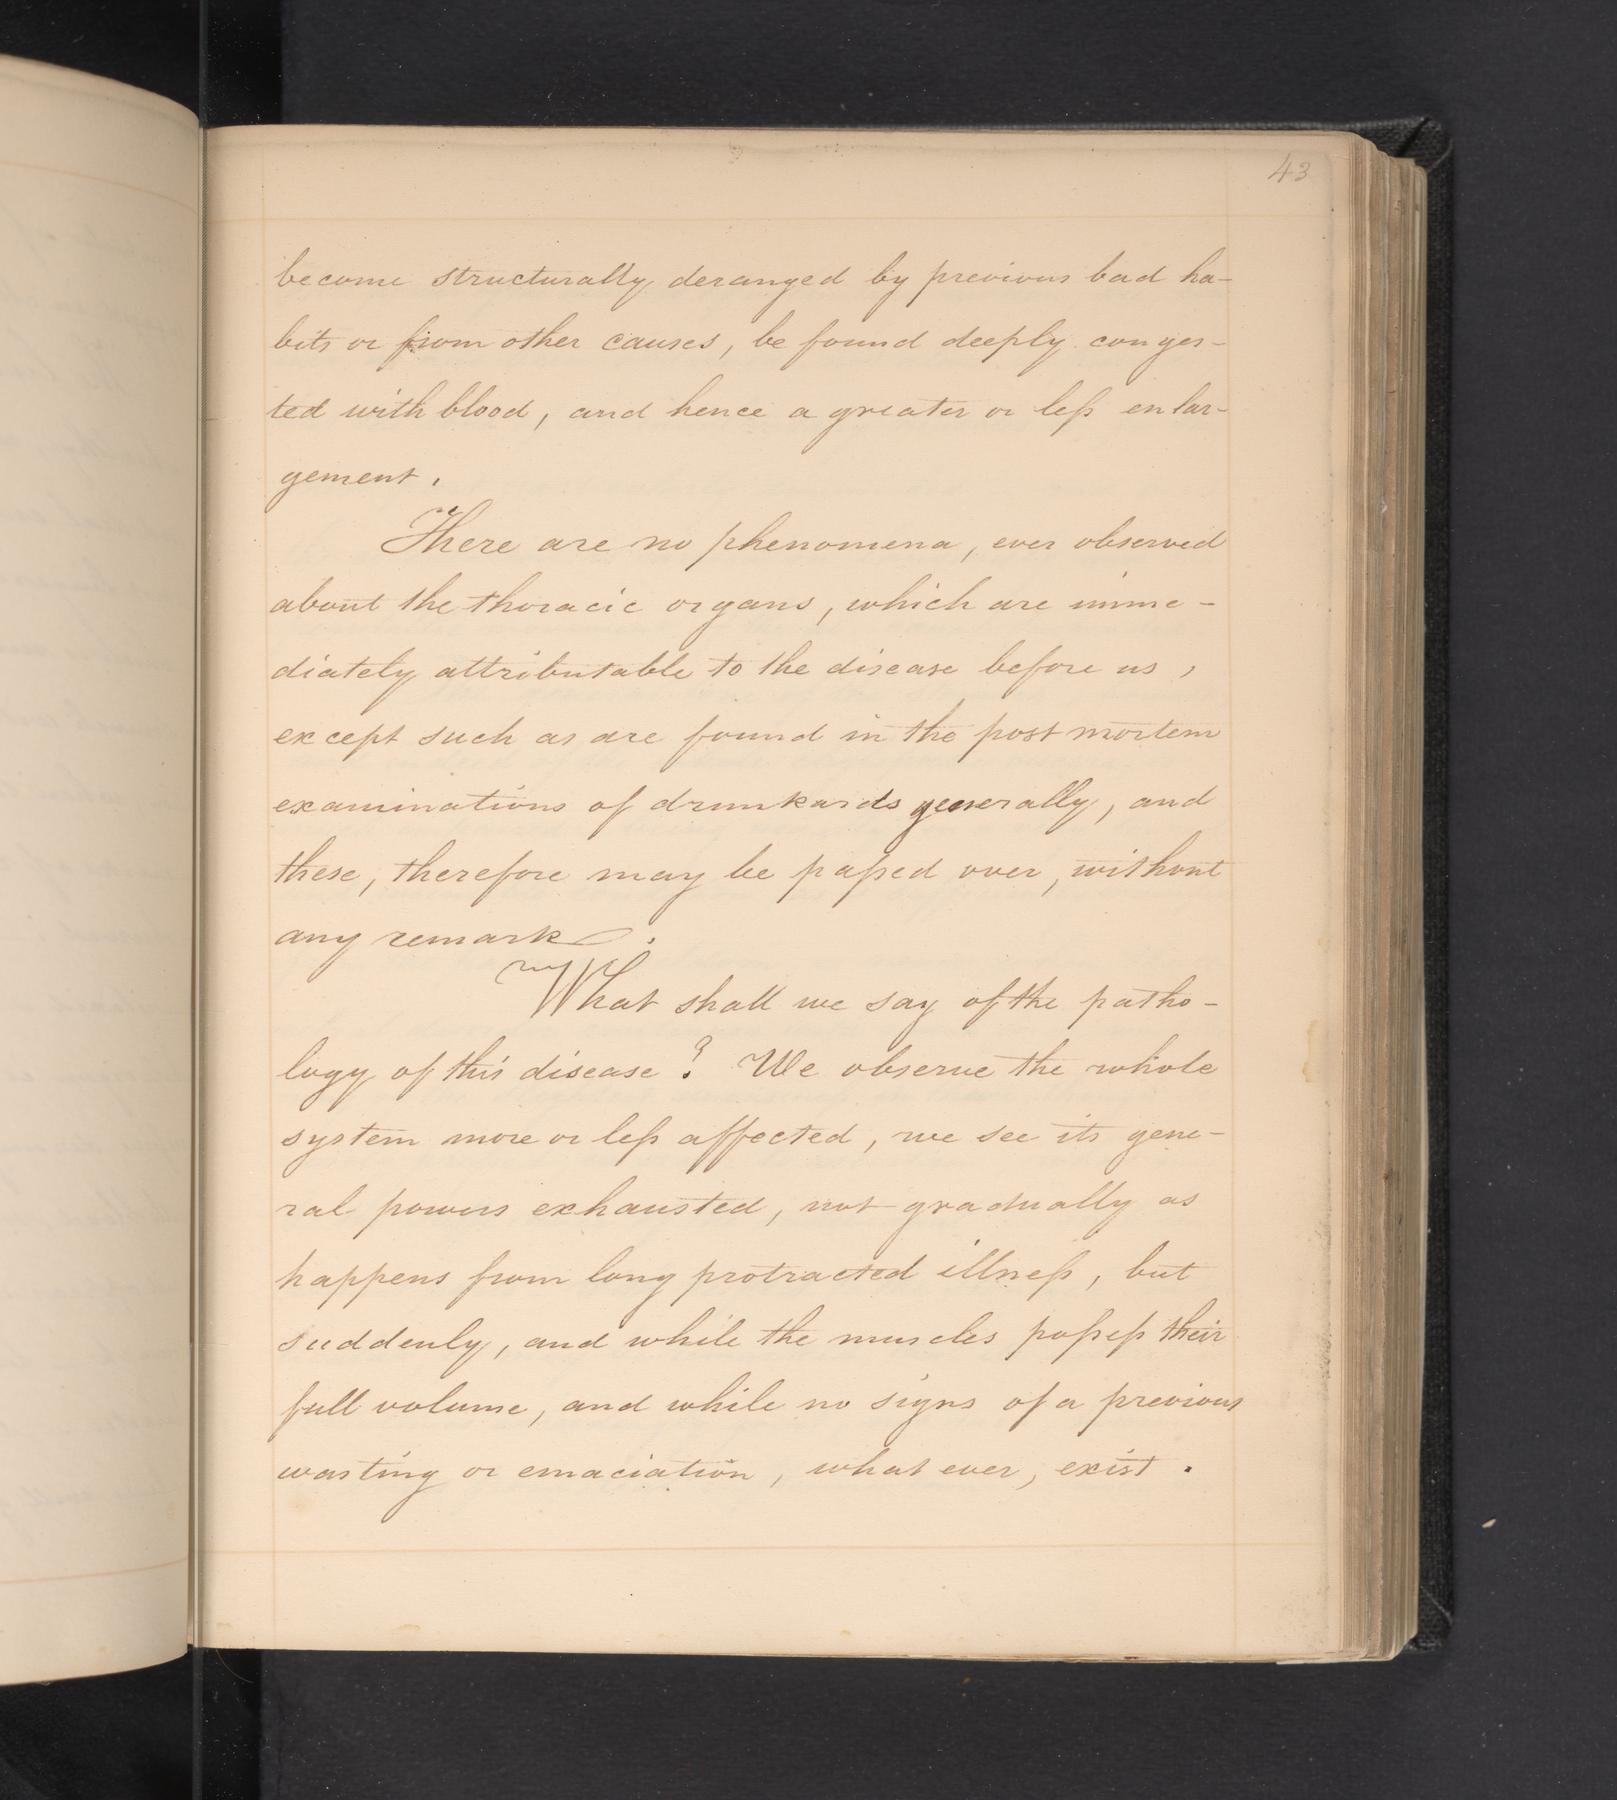 43
become structurally deranged by previous bad ha-
bits or from other causes, be found deeply conges-
ted with blood, and hence a greater or less enlar-
gement.
There are no phenomena, ever observed
about the thoracic organs, which are imme-
diately attributable to the disease before us,
except such as are found in the post mortem
examinations of drunkards generally, and
these, therefore may be passed over, without
any remark.
What shall we say of the patho-
logy of this disease? We observe the whole
system more or less affected, we see its gene-
ral powers exhausted, not gradually as
happens from long protracted illness, but
suddenly, and while the muscles possess their
full volume, and while no signs of a previous
wasting or emaciation, what ever, exist.